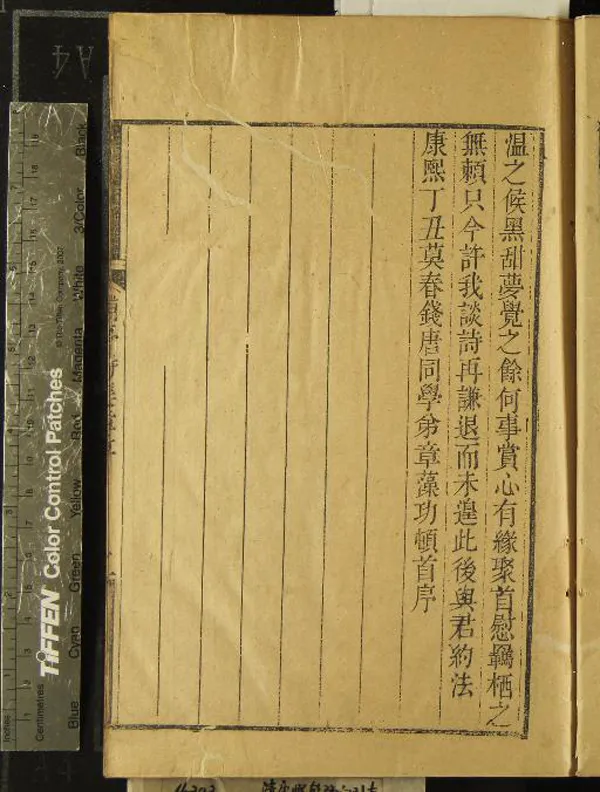 溫之候黑甜夢覺之餘何事賞心有緣聚首慰羈栖之
無賴只今許我談詩再謙退而未遑此後與君約法
康熙丁丑莫春錢唐同學弟章藻功頓首序
A4
Inches
Centimetres
TIFFEN Color Control Patches
© The Tiffen Company, 2007
Blue
Cyan
Green
Yellow
Red
Magenta
White
3/Color
Black